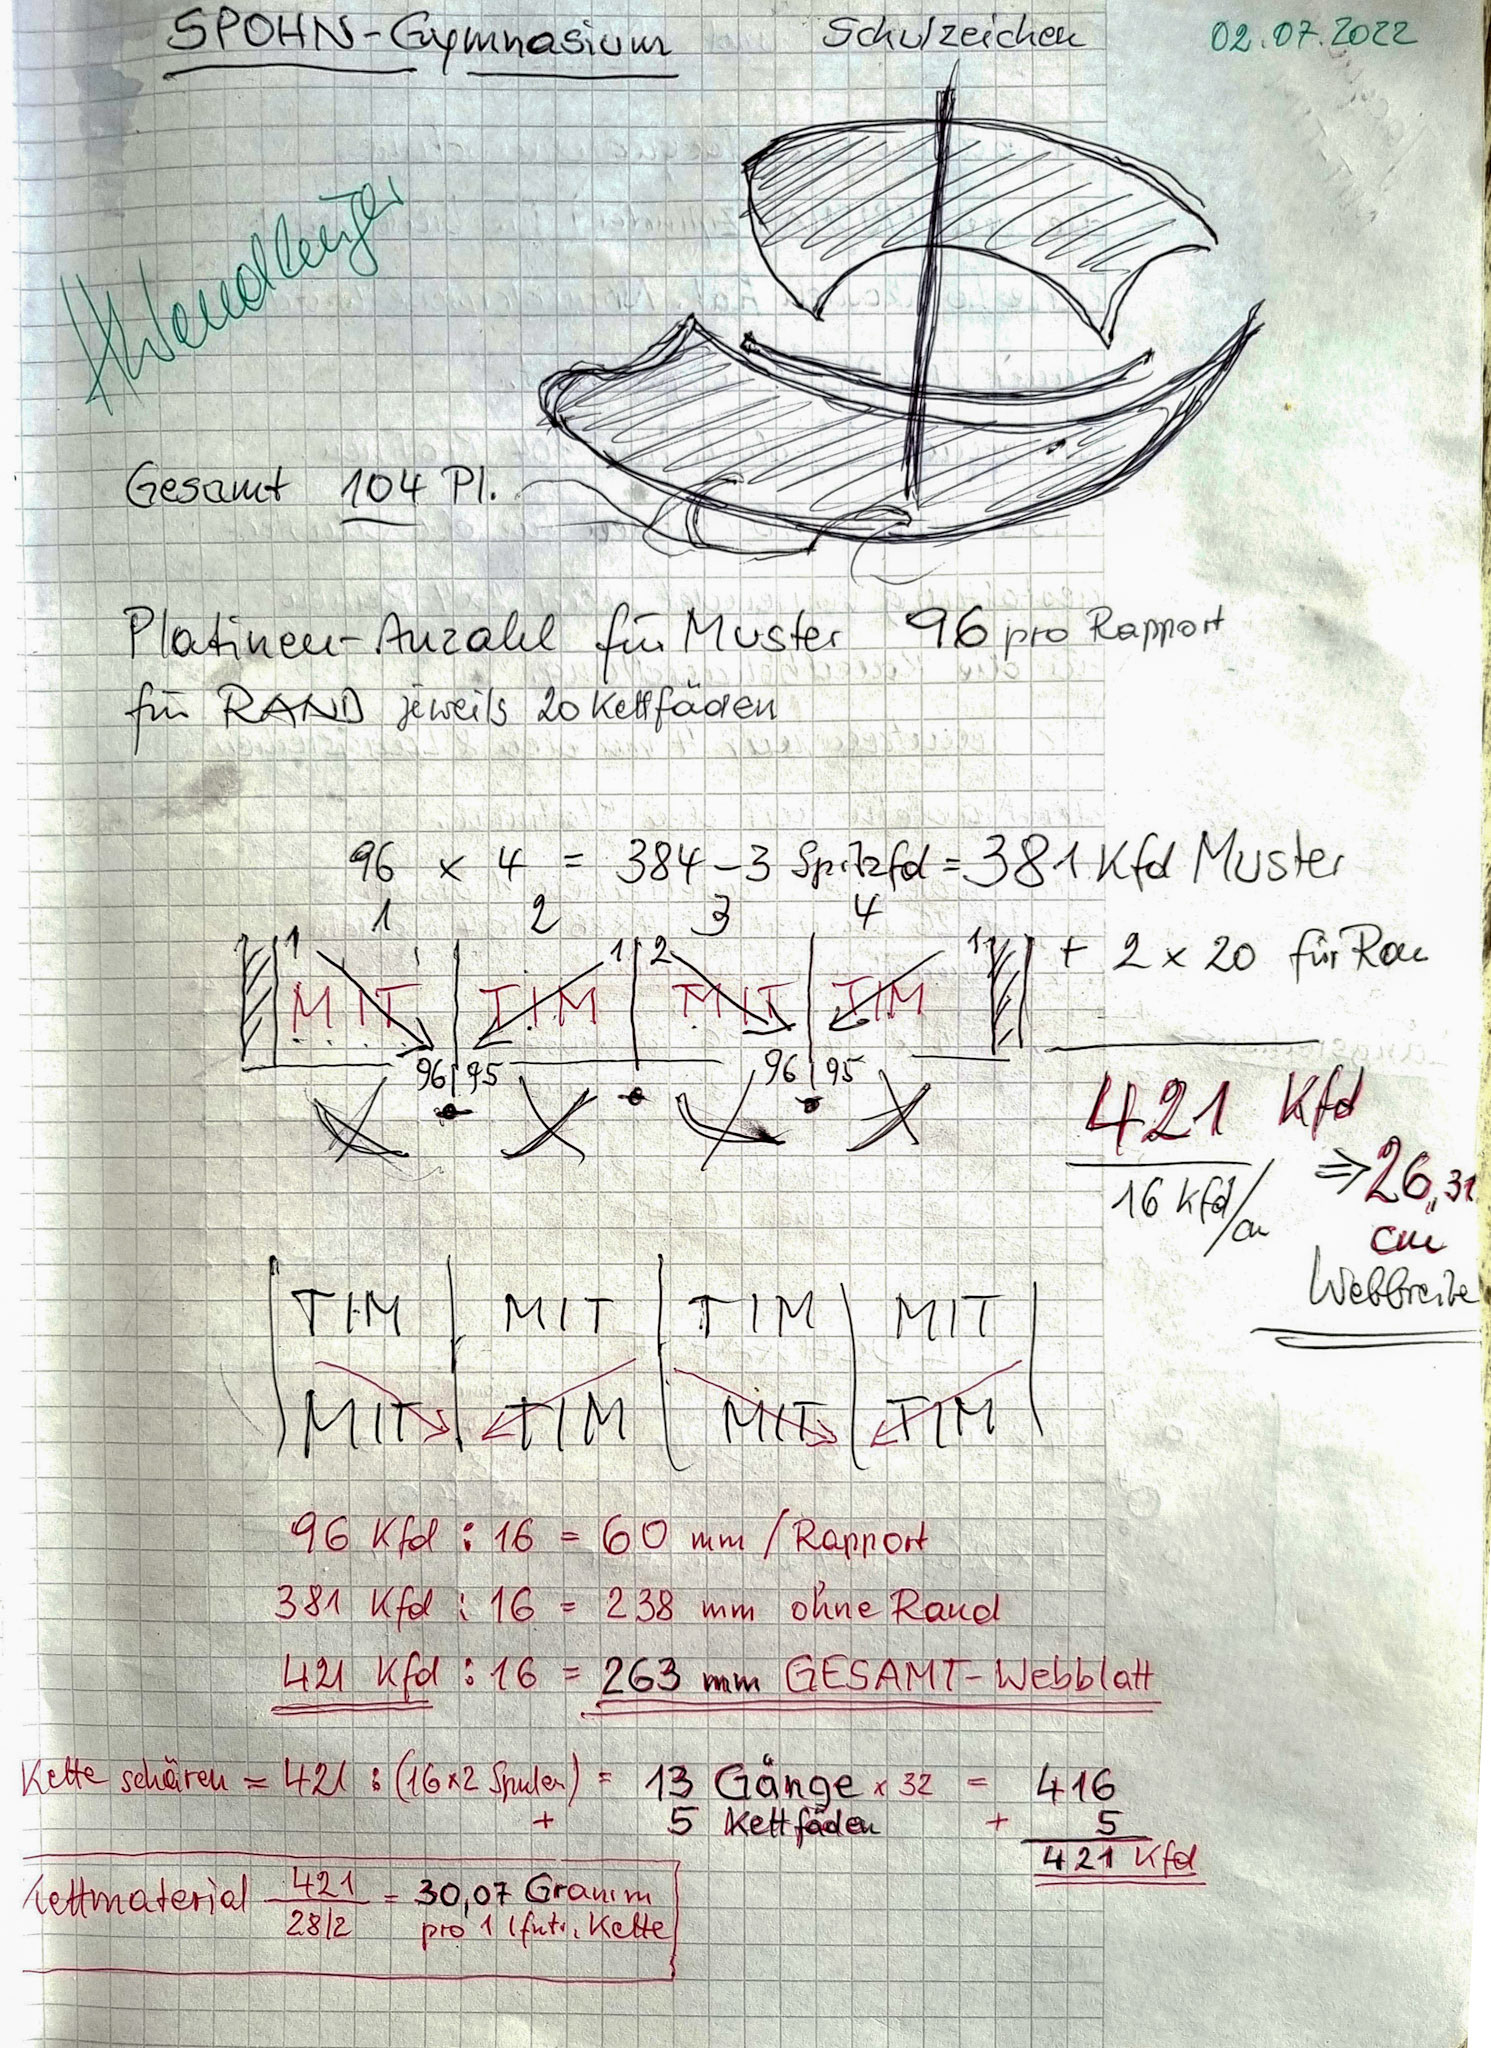 SPOHN-Gymnasium Schulzeichen 02.07.2022
Gesamt 104 Pl.
Platinen-Anzahl für Muster 96 pro Rapport
für RAND jeweils 20 Kettfäden
96 x 4 = 384 - 3 Spitzfd = 381 Kfd Muster
1 2 3 4
1 1 2 1
+ 2 x 20 für
MIT TIM MIT TIM
96 95 96 95
421 Kfd
16 Kfd/cm
⇒ 26,31
cm
Webbreite
TIM MIT TIM MIT
MIT TIM MIT TIM
96 Kfd : 16 = 60 mm / Rapport
381 Kfd : 16 = 238 mm ohne Rand
421 Kfd : 16 = 263 mm GESAMT-Webblatt
Kette schären = 421 : (16x2 Spulen) = 13 Gänge x 32 = 416
+ 5 Kettfäden + 5
421 Kfd
Kettmaterial 421 = 30,07 Gramm
28/2 pro 1 Kette